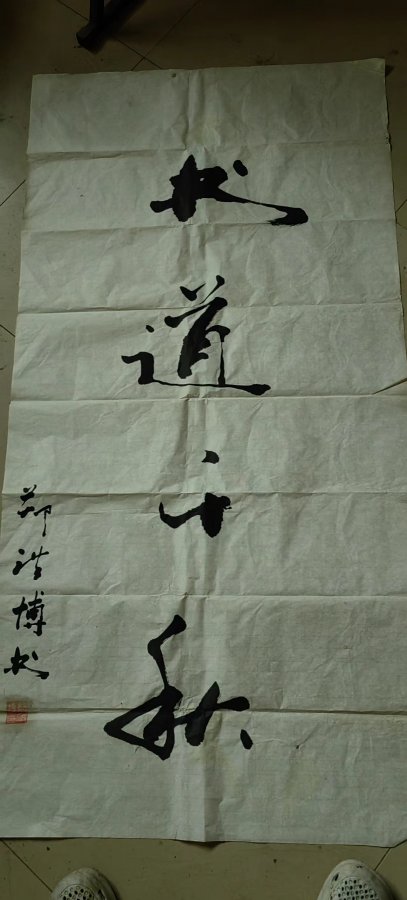 书道千秋
郑浩博书